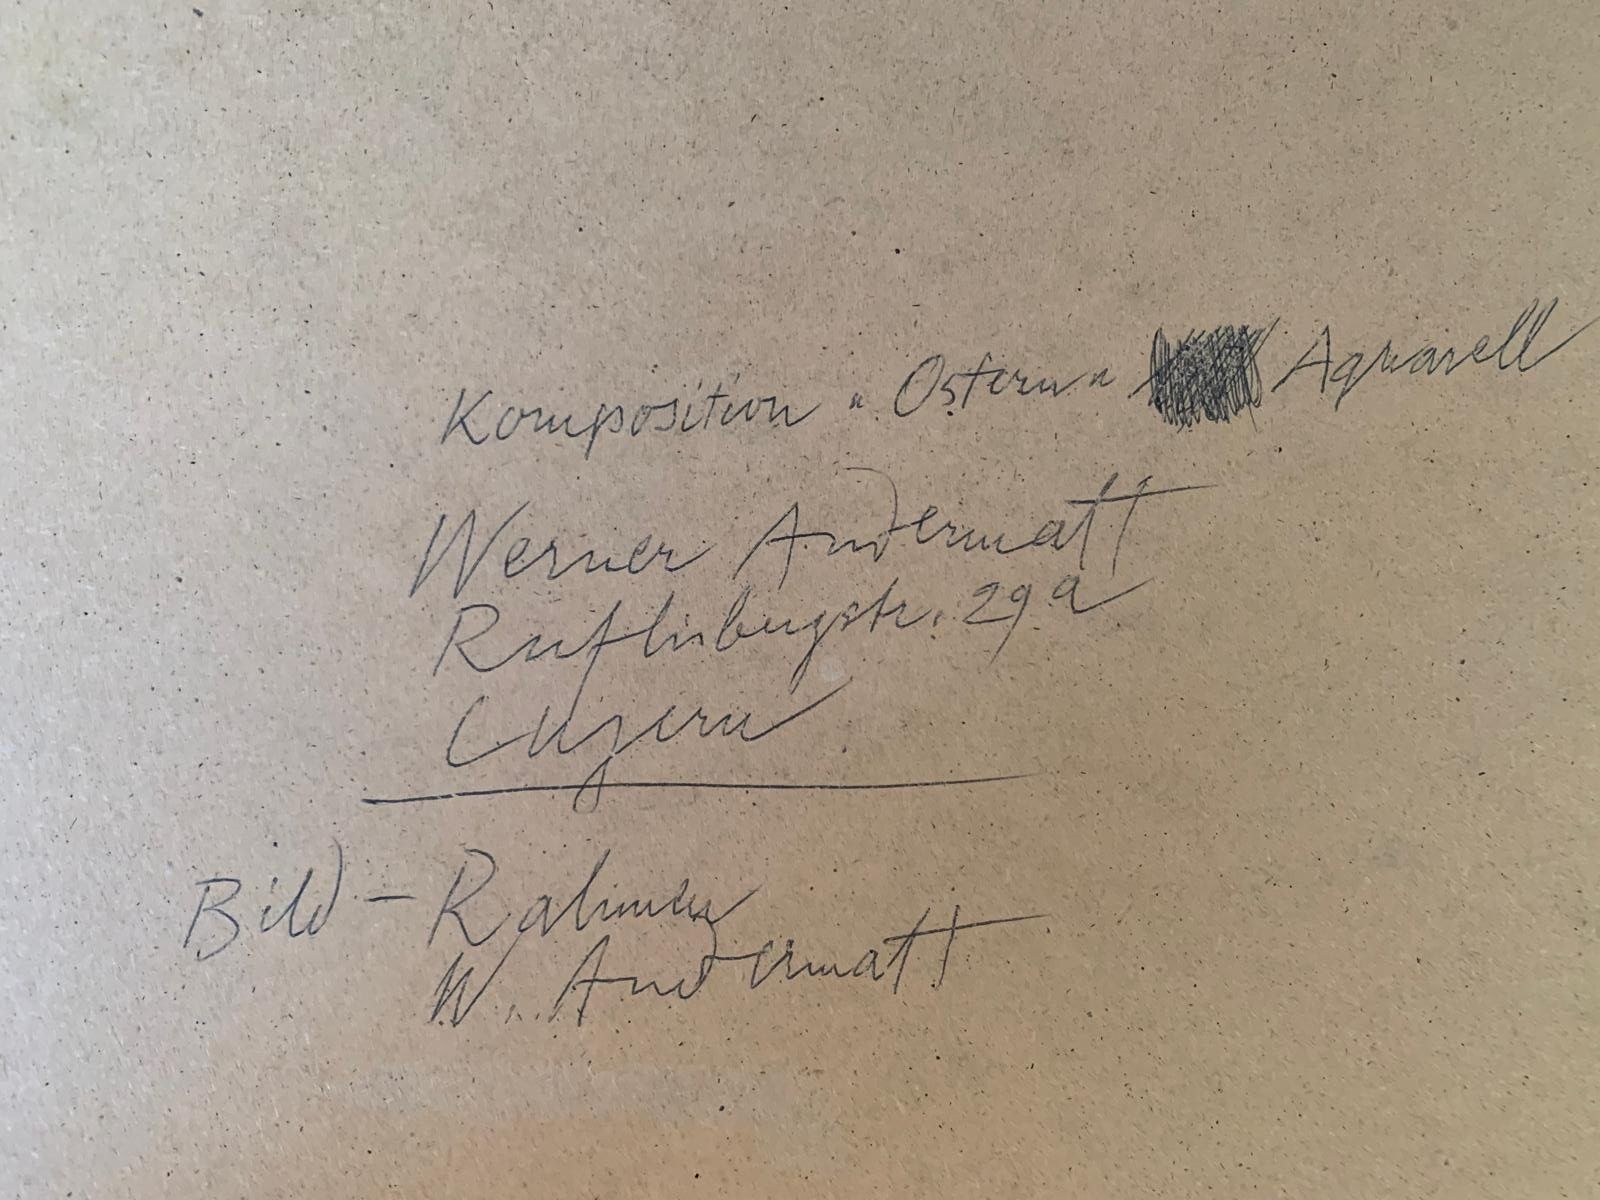 Komposition "Ostern" Aquarell
Werner Andermatt
Ruflisbergstr. 29a
Luzern
Bild - Rahmen
W. Andermatt